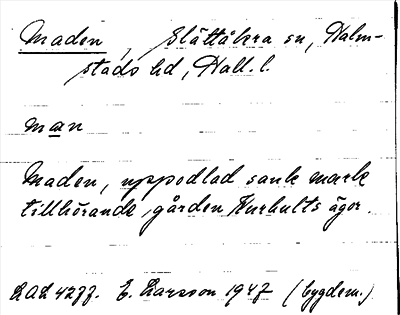 Maden, Slättåkra sn, Halm-
stads hd, Hall. l.
man
Maden, uppodlad sank mark
tillhörande gården Kurhults ägor.
LAL 4277. E. Larsson 1947 (bygdem.)